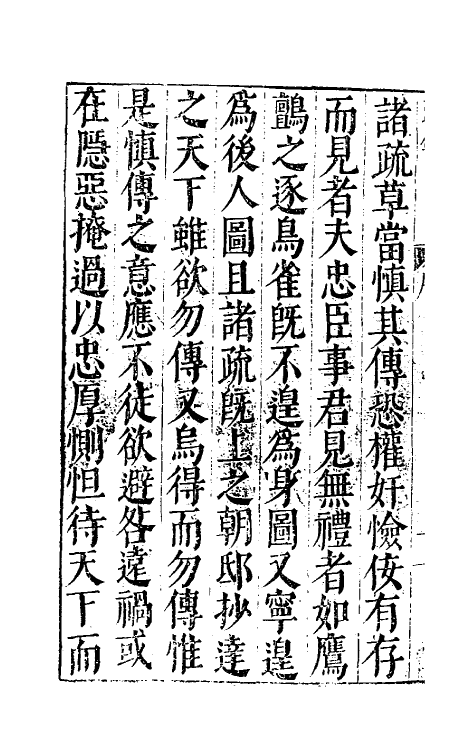 諸疏草當慎其傳恐權奸憸佞有存
而見者夫忠臣事君見無禮者如鷹
鸇之逐鳥雀旣不遑為身圖又寧遑
為後人圖且諸疏旣上之朝邸抄達
之天下雖欲勿傳又烏得而勿傳惟
是慎傳之意應不徒欲避咎遠禍或
在隱惡掩過以忠厚惻怛待天下而